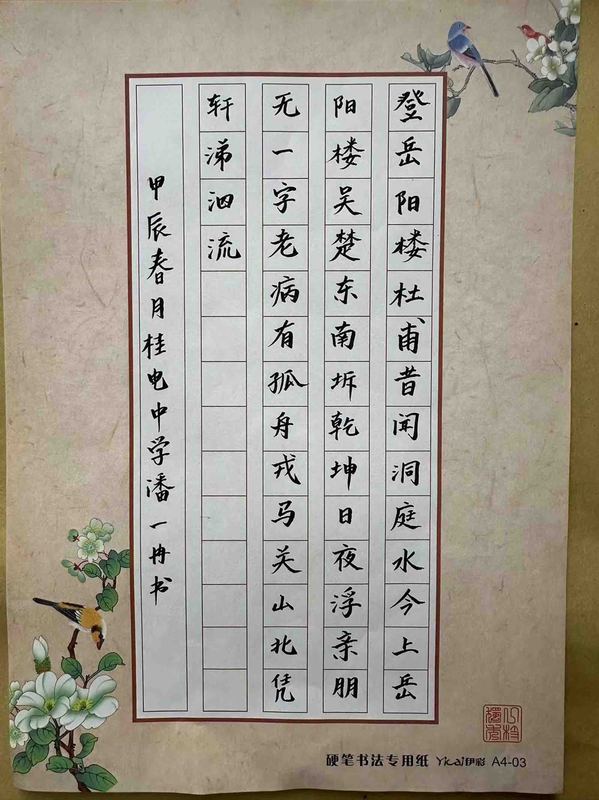 登岳阳楼杜甫昔闻洞庭水今上岳
阳楼吴楚东南坼乾坤日夜浮亲朋
无一字老病有孤舟戎马关山北凭
轩涕泗流
甲辰春月桂电中学潘一冉书
硬笔书法专用纸 Yicai伊彩 A4-03